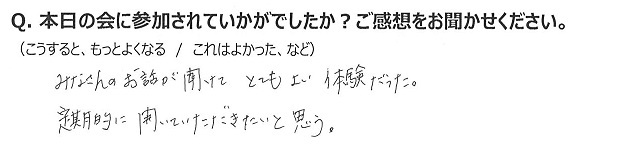 Q. 本日の会に参加されていかがでしたか？ご感想をお聞かせください。
（こうすると、もっとよくなる / これはよかった、など）
みなさんのお話が聞けて とてもよい体験だった。
定期的に開いていただきたいと思う。